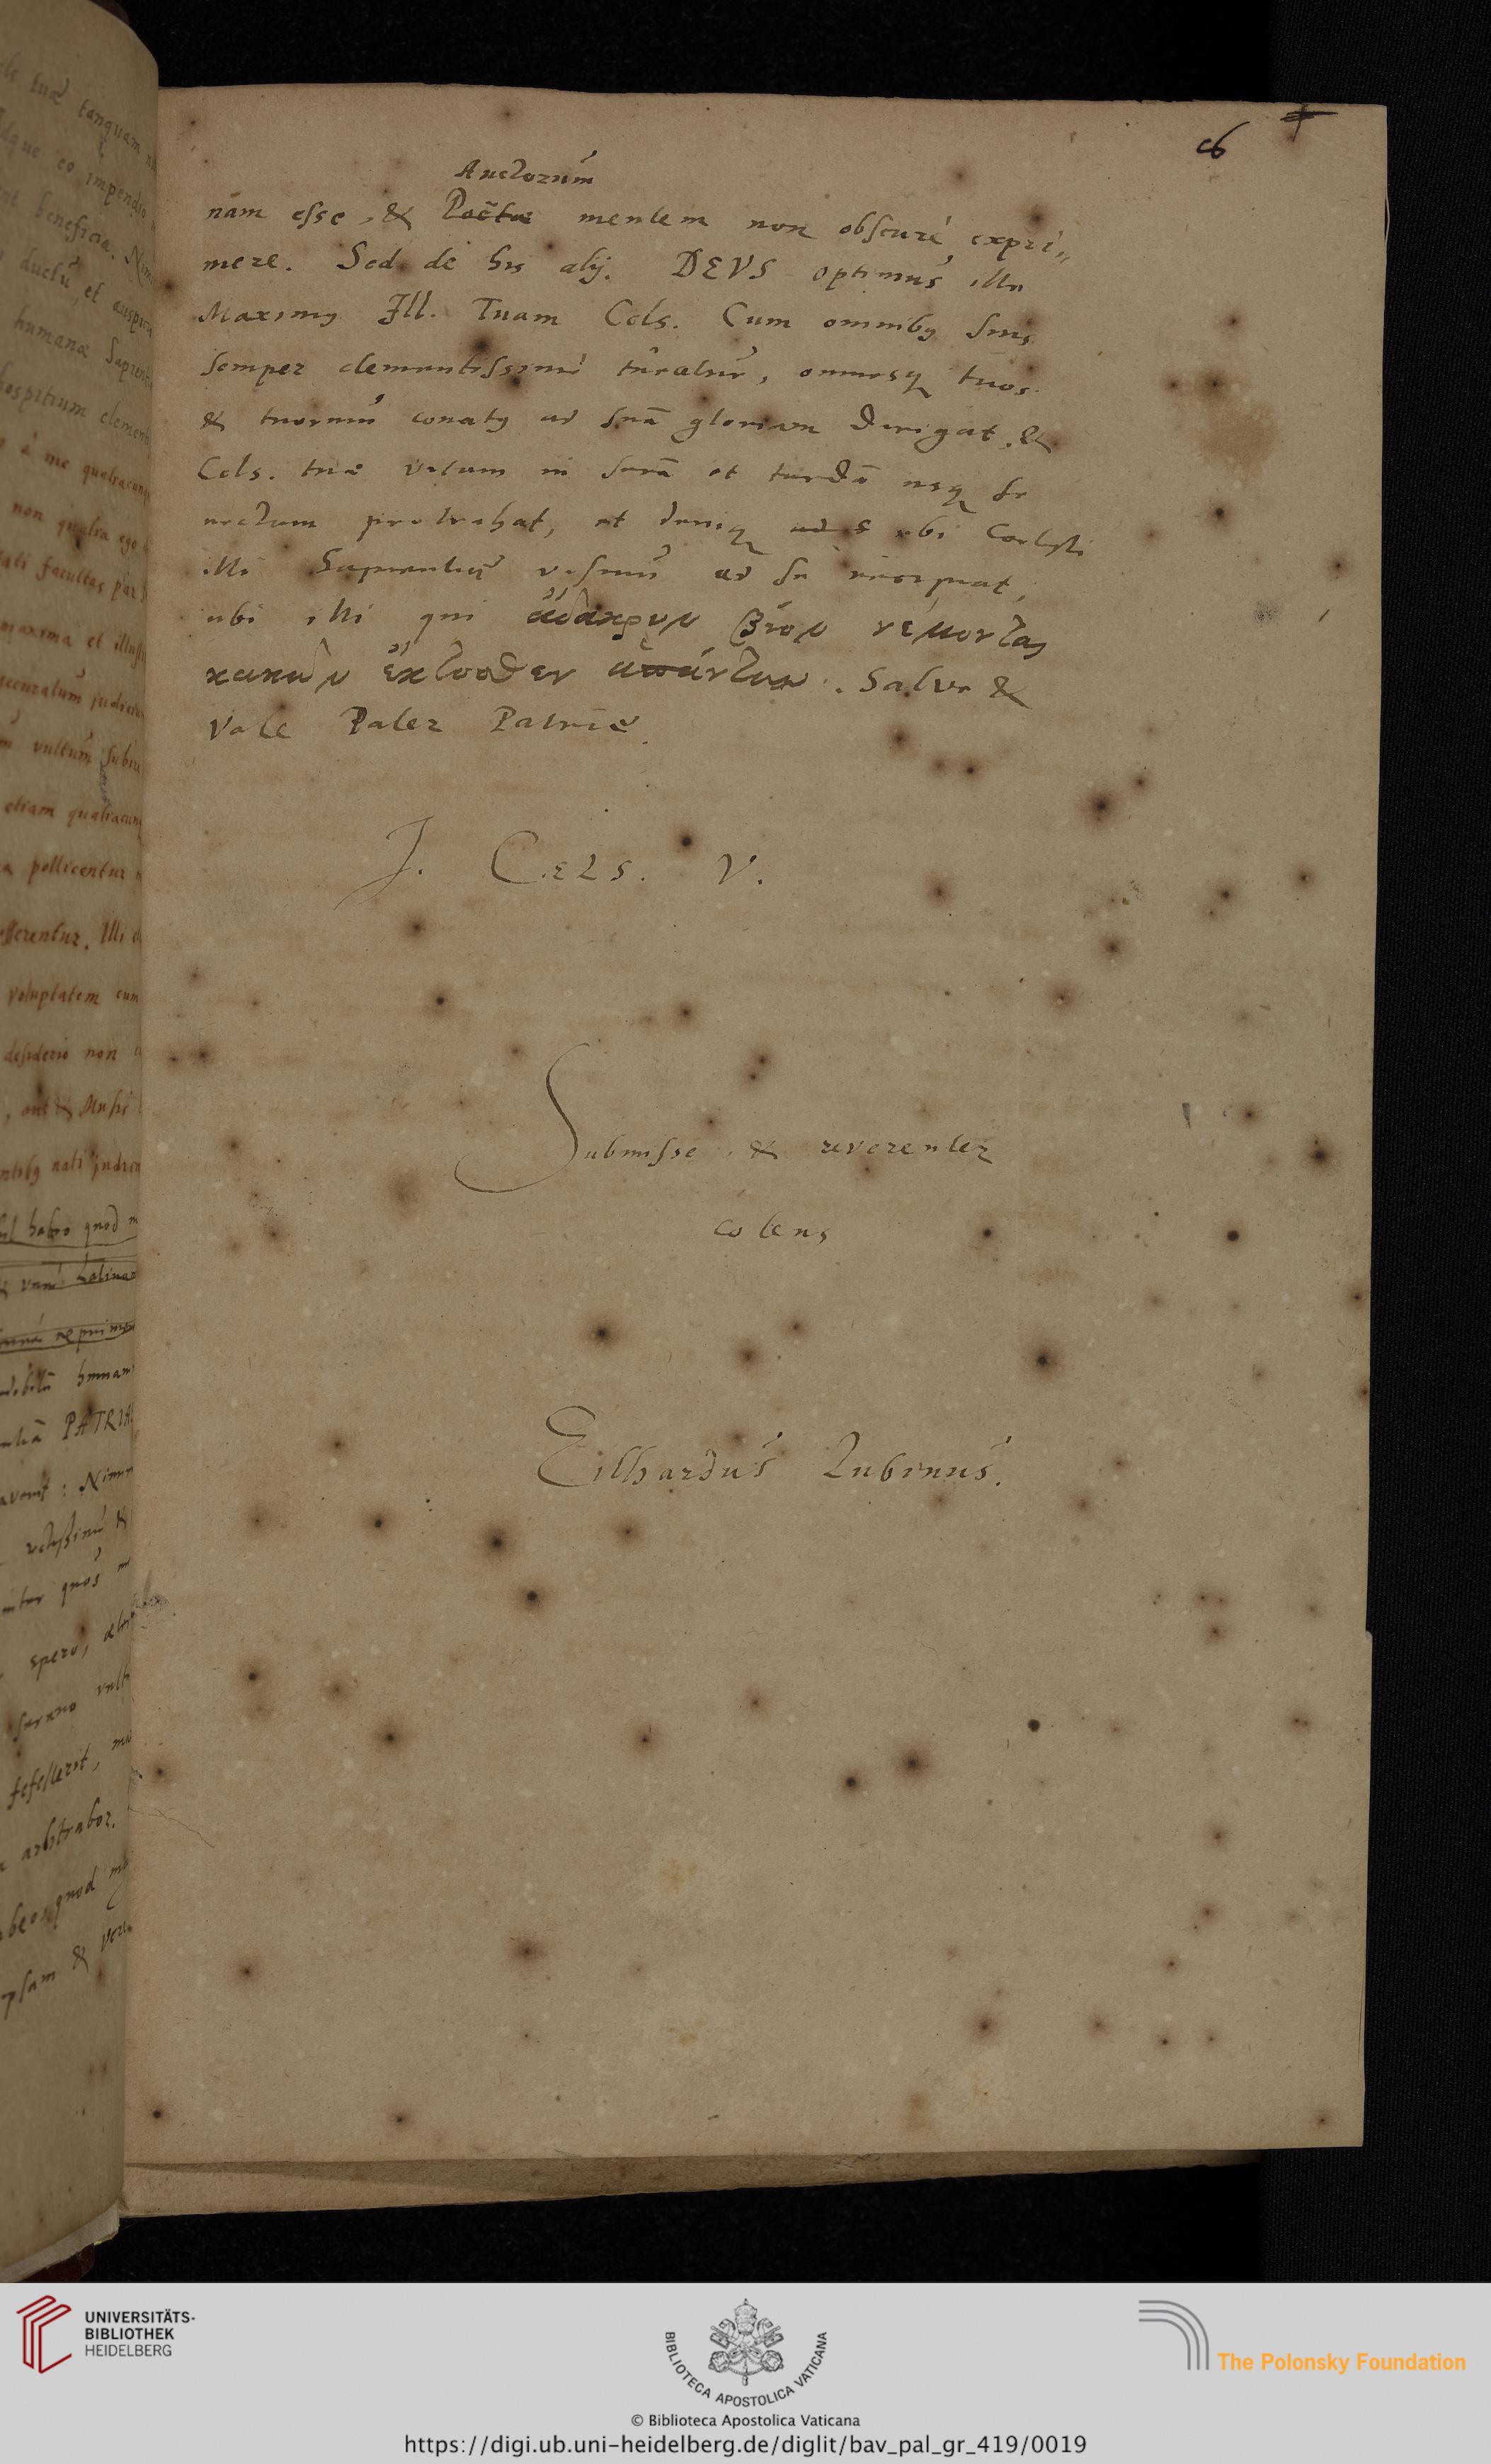 cb
Auctorum
nam esse, & Poëtae mentem non obscuré expri„
mere. Sed de his alij. DEVS optimus ille
Maximus Ill. Tuam Cels. Cum omnibus suis
semper clementissimè tueatur, omnesq tuos
& tuorum conatus ad suā gloriam dirigat, &
Cels. tuae vitam in serā et tardā usq se
nectam protrahat, et deniq ad s ubi Coelesti
illi Sapientium ad se recipiat,
ubi illi qui ἄδακρυν βίον νέμονται
κακῶν ἔκτοσθεν ἁπάντων. Salve &
Vale Pater Patriæ.
I. Cels. V.
Submisse & reverenter
colens
Eilhardus Lubinus.
tuæ tanquam
que eo impendio
beneficia.
ductu, et auspici
humanæ Sapient
hospitium clement
à me qualiacunq
non qualia ego
facultas par
maxima et illust
accuratum judiciu
vultum subiu
etiam qualiacunq
pollicentur
efferentur. Illi
voluptatem cum
desiderio non
aut & Musis
nati
habeo quod
Latina
human
PATRIA
Nimi
quos
spero,
vult
fefellerit,
arbitrabor.
quod
ipsam &
UNIVERSITÄTS-
BIBLIOTHEK
HEIDELBERG
BIBLIOTECA APOSTOLICA VATICANA
The Polonsky Foundation
© Biblioteca Apostolica Vaticana
https://digi.ub.uni-heidelberg.de/diglit/bav_pal_gr_419/0019